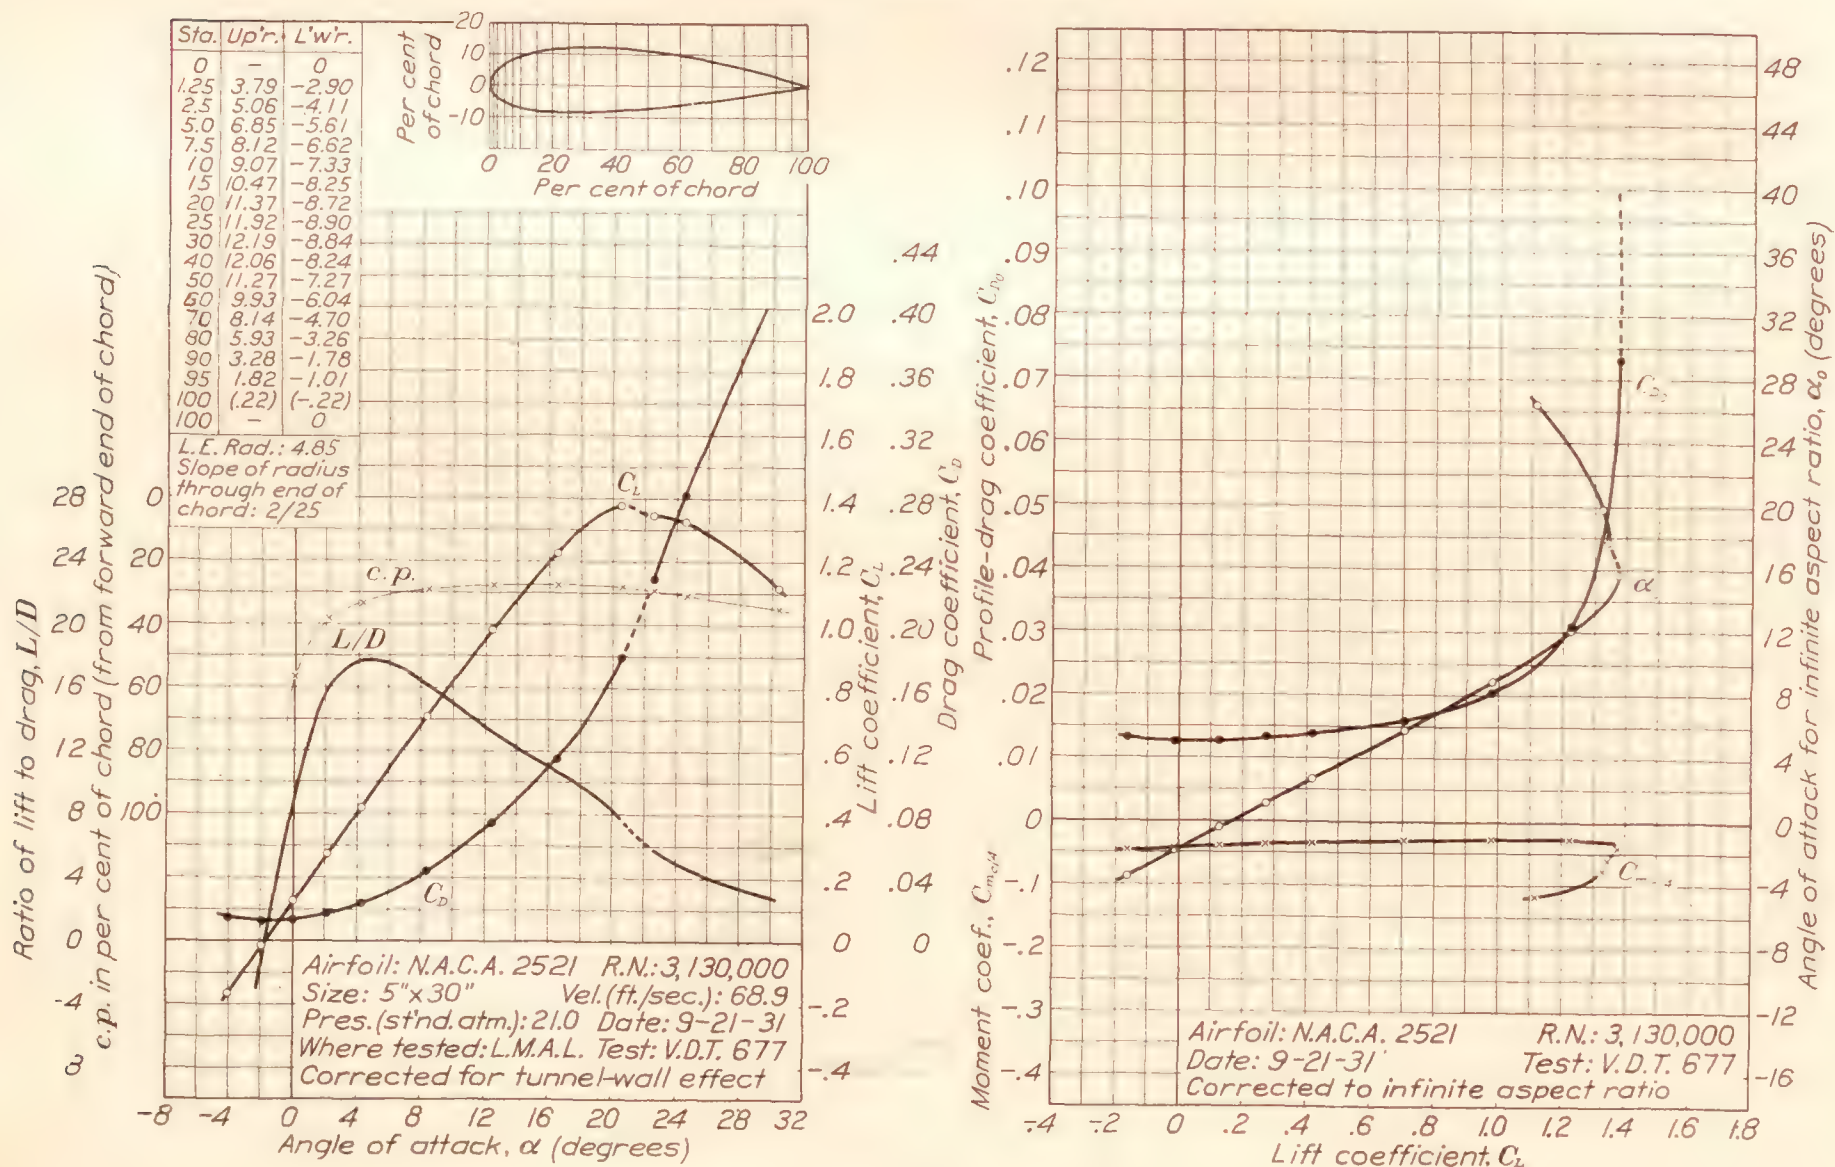 Sta. Up'r. L'w'r.
0 – 0
1.25 3.79 -2.90
2.5 5.06 -4.11
5.0 6.85 -5.61
7.5 8.12 -6.62
10 9.07 -7.33
15 10.47 -8.25
20 11.37 -8.72
25 11.92 -8.90
30 12.19 -8.84
40 12.06 -8.24
50 11.27 -7.27
60 9.93 -6.04
70 8.14 -4.70
80 5.93 -3.26
90 3.28 -1.78
95 1.82 -1.01
100 (.22) (-.22)
100 – 0
L.E. Rad.: 4.85
Slope of radius
through end of
chord: 2/25
Per cent
of chord
20
10
0
-10
0 20 40 60 80 100
Per cent of chord
Ratio of lift to drag, L/D
28
24
20
16
12
8
4
0
-4
8
c.p. in per cent of chord (from forward end of chord)
0
20
40
60
80
100
c.p.
L/D
C_L
C_D
2.0
1.8
1.6
1.4
1.2
1.0
.8
.6
.4
.2
0
-.2
-.4
Lift coefficient, C_L
.44
.40
.36
.32
.28
.24
.20
.16
.12
.08
.04
0
Drag coefficient, C_D
Airfoil: N.A.C.A. 2521 R.N.: 3,130,000
Size: 5"x30" Vel.(ft./sec.): 68.9
Pres.(st'nd. atm.): 21.0 Date: 9-21-31
Where tested: L.M.A.L. Test: V.D.T. 677
Corrected for tunnel-wall effect
-8 -4 0 4 8 12 16 20 24 28 32
Angle of attack, α (degrees)
Profile-drag coefficient, C_D0
.12
.11
.10
.09
.08
.07
.06
.05
.04
.03
.02
.01
0
Moment coef., C_mc/4
-.1
-.2
-.3
-.4
C_D0
α
48
44
40
36
32
28
24
20
16
12
8
4
0
-4
-8
-12
-16
Angle of attack for infinite aspect ratio, α₀ (degrees)
Airfoil: N.A.C.A. 2521 R.N.: 3,130,000
Date: 9-21-31 Test: V.D.T. 677
Corrected to infinite aspect ratio
-.4 -.2 0 .2 .4 .6 .8 1.0 1.2 1.4 1.6 1.8
Lift coefficient, C_L